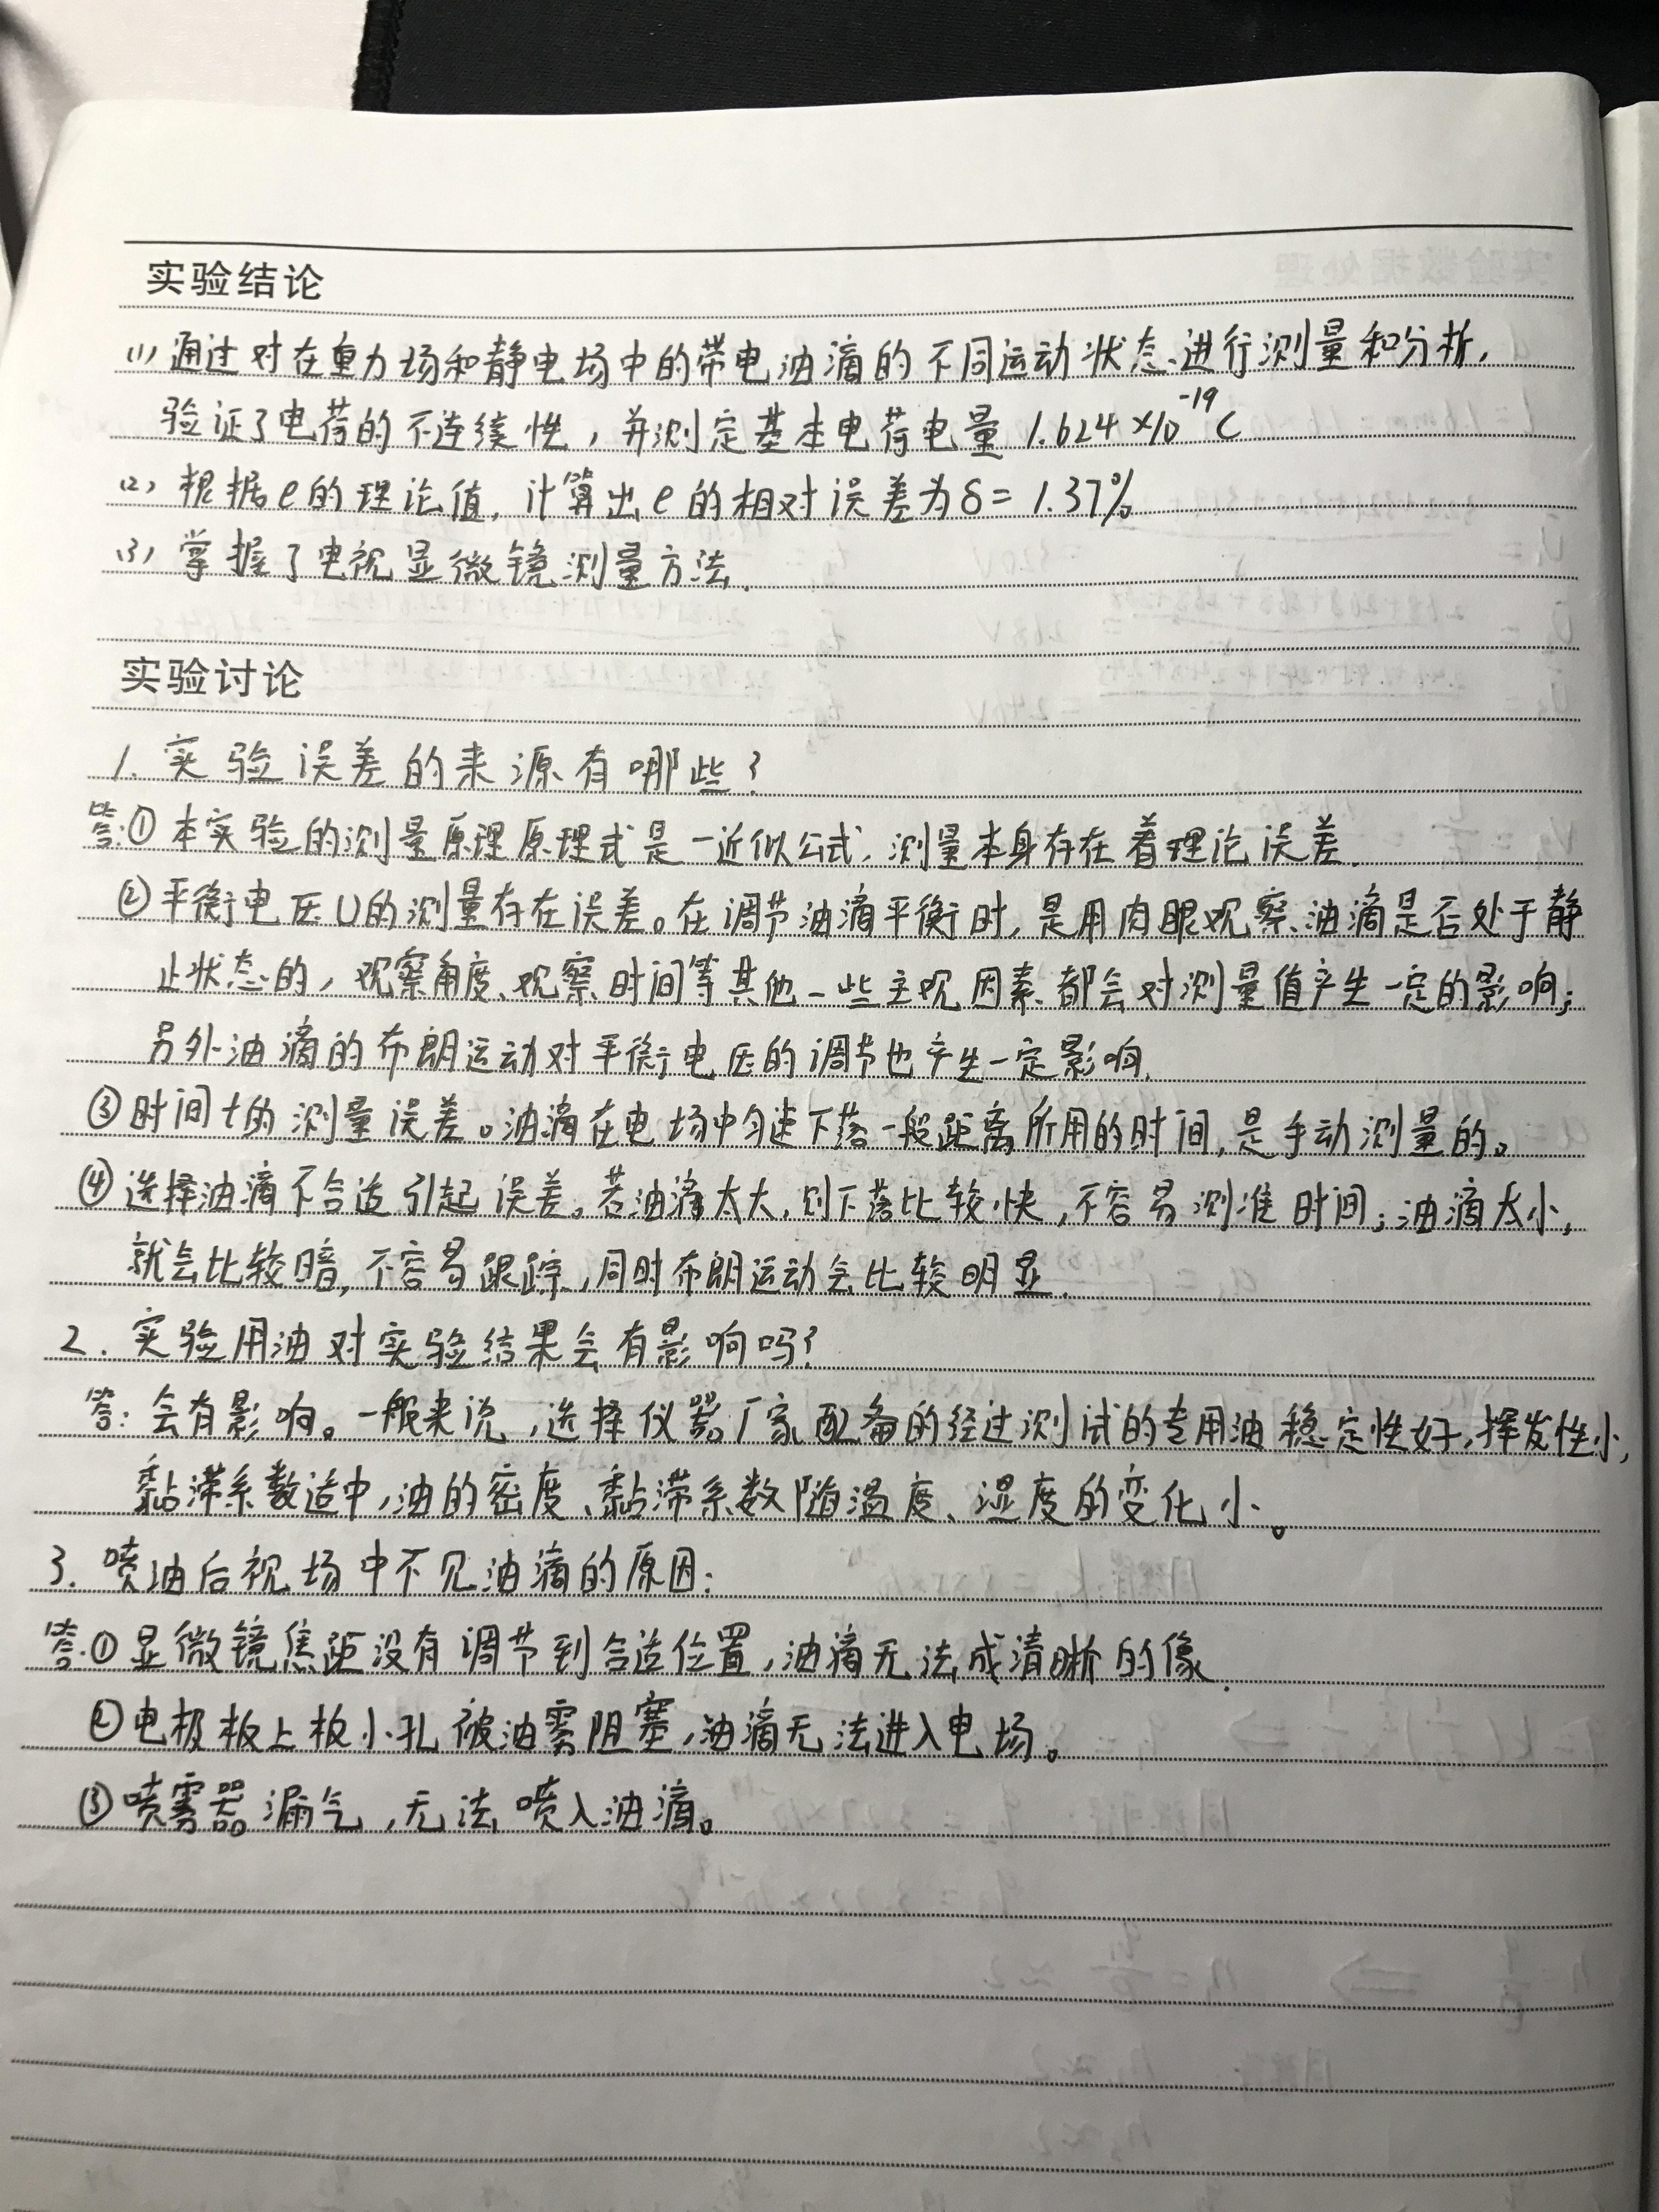 实验结论
(1) 通过对在重力场和静电场中的带电油滴的不同运动状态进行测量和分析,
验证了电荷的不连续性，并测定基本电荷电量 1.624×10⁻¹⁹C
(2) 根据e的理论值，计算出e的相对误差为δ=1.37%
(3) 掌握了电视显微镜测量方法.
实验讨论
1. 实验误差的来源有哪些？
答:①本实验的测量原理原理式是一近似公式，测量本身存在着理论误差.
②平衡电压U的测量存在误差。在调节油滴平衡时，是用肉眼观察油滴是否处于静
止状态的，观察角度、观察时间等其他一些主观因素都会对测量值产生一定的影响；
另外油滴的布朗运动对平衡电压的调节也产生一定影响.
③时间t的测量误差。油滴在电场中匀速下落一般距离所用的时间，是手动测量的。
④选择油滴不合适引起误差。若油滴太大，则下落比较快，不容易测准时间；油滴太小，
就会比较暗，不容易跟踪，同时布朗运动会比较明显.
2. 实验用油对实验结果会有影响吗？
答：会有影响。一般来说，选择仪器厂家配备的经过测试的专用油稳定性好，挥发性小，
黏滞系数适中，油的密度、黏滞系数随温度、湿度的变化小。
3. 喷油后视场中不见油滴的原因：
答:①显微镜焦距没有调节到合适位置，油滴无法成清晰的像.
②电极板上板小孔被油雾阻塞，油滴无法进入电场。
③喷雾器漏气，无法喷入油滴。